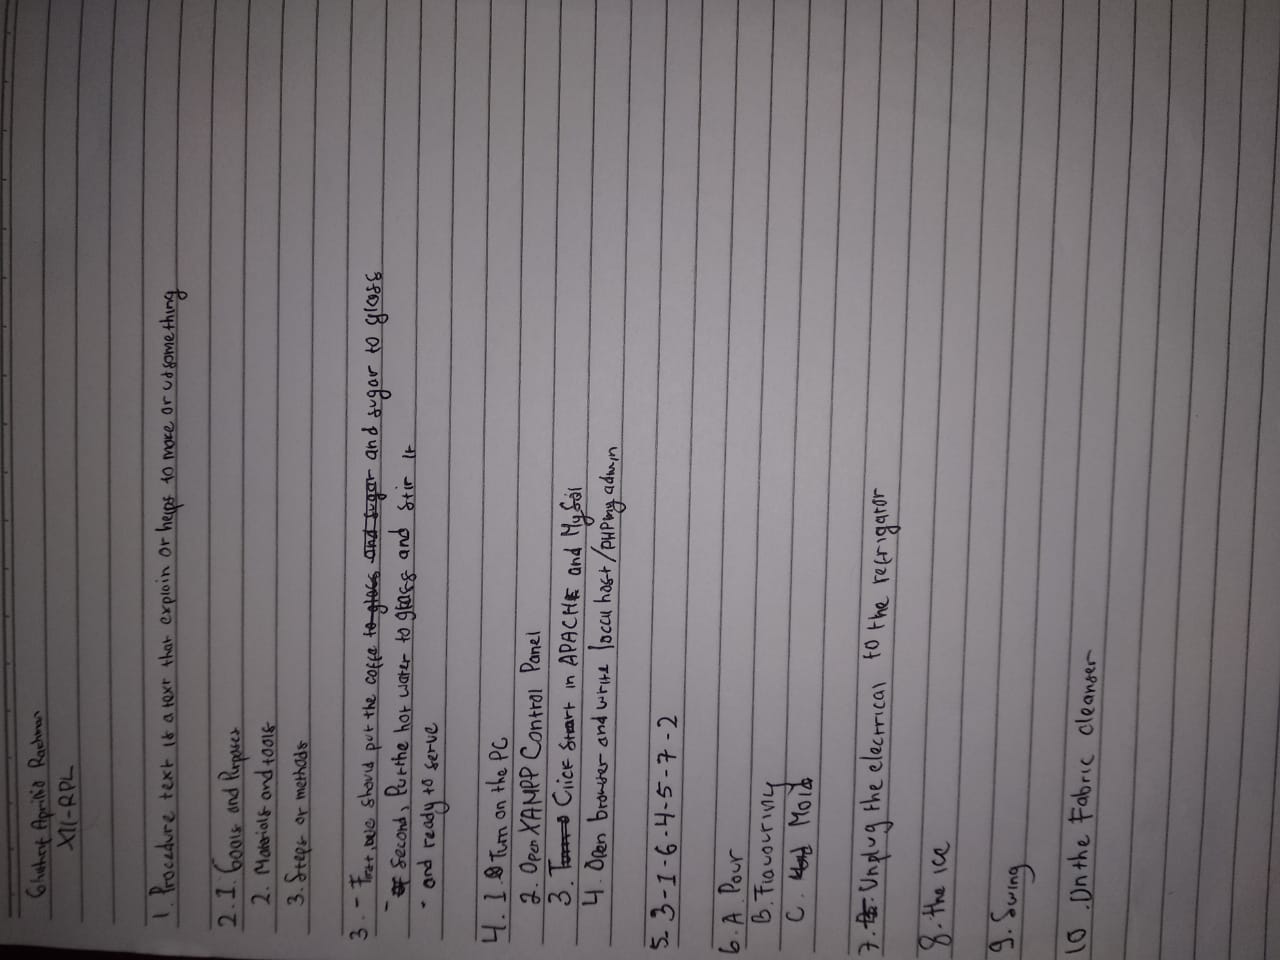 Aprilio Rachman
XII-RPL
1. Procedure text is a text that explain or helps to make or use something
2. 1. Goals and Purposes
2. Materials and tools
3. Steps or methods
3. - First we should put the coffe to glass and sugar and sugar to glass
- Second, Put the hot water to glass and stir it
- and ready to serve
4. 1. Turn on the PC
2. Open XAMPP Control Panel
3. Click Start in APACHE and MySql
4. Open browser and write local host/PHPmyadmin
5. 3-1-6-4-5-7-2
6. A. Pour
B. Flavouring
C. Mold
7. Unplug the electrical to the refrigrator
8. the ice
9. Swing
10. On the Fabric cleanser